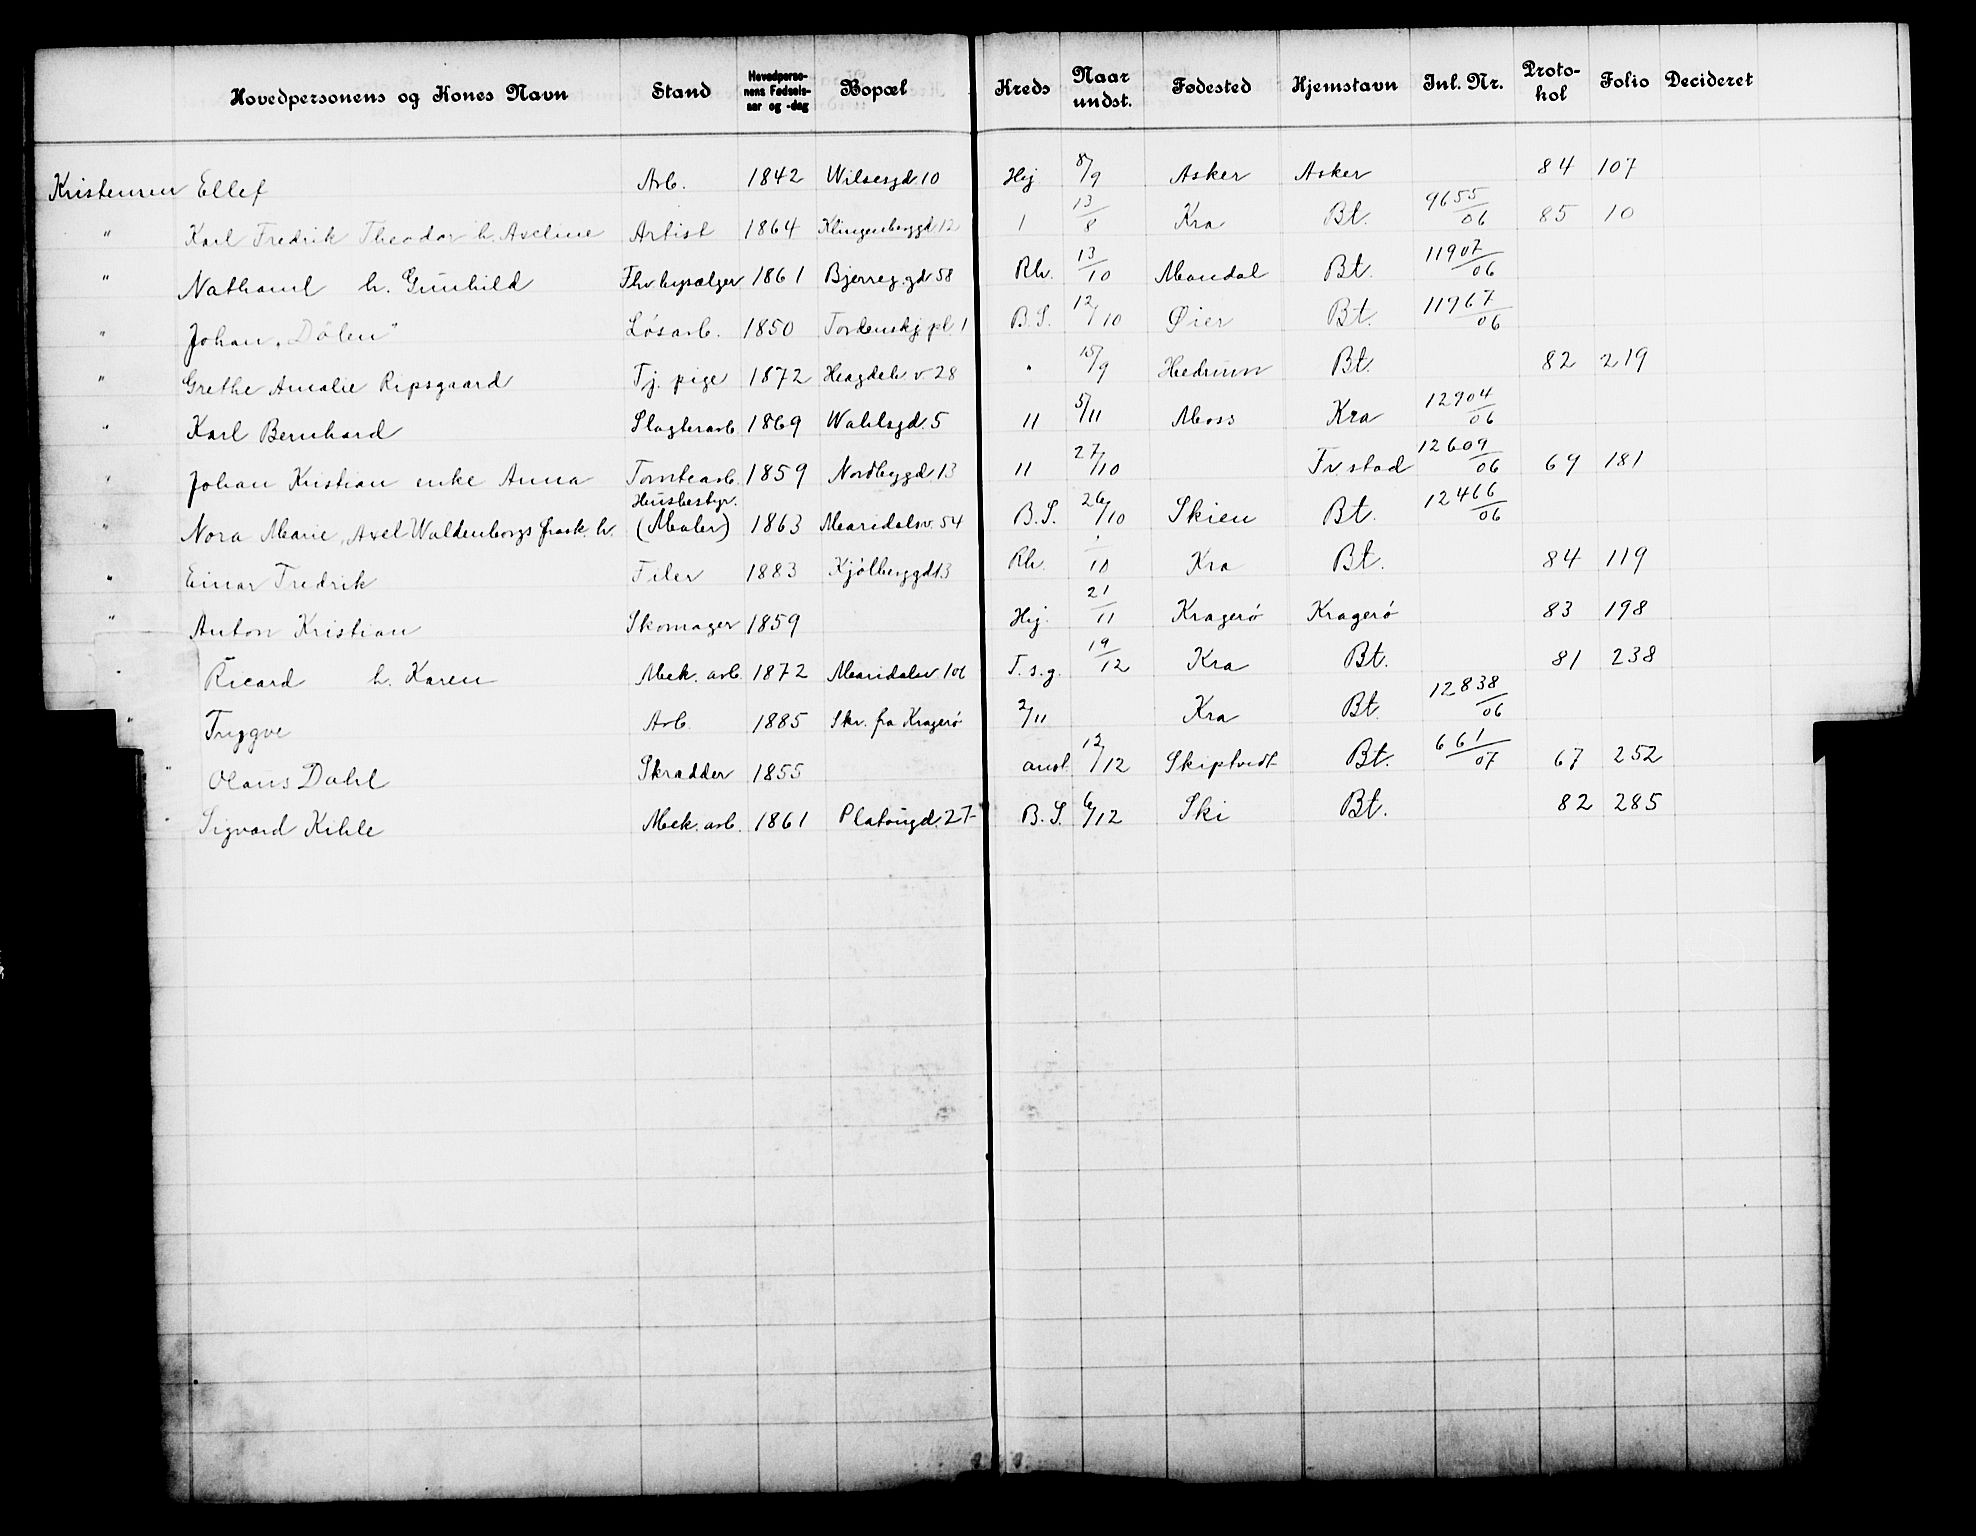 Hovedpersonens og Kones Navn Stand Hovedpersonens Fødselsaar og -dag Bopæl Kreds Naar undst. Fødested Hjemstavn Inl. Nr. Protokol Folio Decideret
Kristensen Ellef Arb. 1842 Wilsesgd. 10 Hej 8/9 Asker Asker 84 107
" Karl Fredrik Theodor h. Axeline Artist 1864 Klingenberggd 12 1 13/8 Kra Bt. 9655/06 85 10
" Nathanel h. Gunhild Fhv bysælger 1861 Bjerreg.gd 58 Rh. 13/10 Mandal Bt. 11907/06
" Johan "Dölen" Løsarb. 1850 Tordenskj. pl 1 B.S. 12/10 Øier Bt. 11967/06
" Grethe Amalie Ripsgaard Tj. pige 1872 Heagdeh. v 28 " 15/9 Hedrum Bt. 82 219
" Karl Bernhard Slagterarb 1869 Wahlsgd. 5 11 5/11 Moss Kra 12904/06
" Johan Kristian enke Anna Tomtearb. 1859 Nordbyggd 13 11 27/10 Fr stad 12609/06 69 181
" Nora Marie, Axel Waldenborgs frask. h. Husbestyr. (Maler) 1863 Maridalsv. 54 B.S. 26/10 Skien Bt. 12466/06
" Einar Fredrik Filer 1883 Kjølberggd 13 Rh. /10 Kra Bt. 84 119
" Anton Kristian Skomager 1859 Hej. 21/11 Kragerø Kragerø 83 198
" Ricard h. Karen Mek. arb. 1872 Maridalsv 106 T.s.g. 19/12 Kra Bt. 81 238
" Trygve Arb. 1885 Skr. fra Kragerø 2/11 Kra Bt. 12838/06
" Olaus Dahl Skrædder 1855 anst. 12/12 Skiptvedt Bt. 661/07 67 252
" Sigvard Kihle Mek. arb. 1861 Platougd. 27 B.S. 6/12 Ski Bt. 82 285